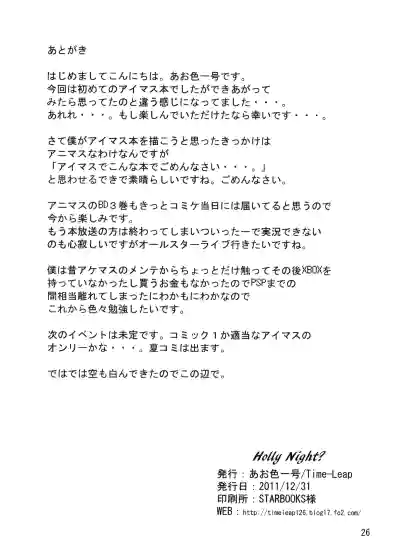 あとがき
はじめましてこんにちは。あお色一号です。
今回は初めてのアイマス本でしたができあがって
みたら思ってたのと違う感じになってました・・・。
あれれ・・・。もし楽しんでいただけたなら幸いです・・・。
さて僕がアイマス本を描こうと思ったきっかけは
アニマスなわけなんですが
「アイマスでこんな本でごめんなさい・・・。」
と思わせるできで素晴らしいですね。ごめんなさい。
アニマスのBD3巻もきっとコミケ当日には届いてると思うので
今から楽しみです。
もう本放送の方は終わってしまいついったーで実況できない
のも心寂しいですがオールスターライブ行きたいですね。
僕は昔アケマスのメンテからちょっとだけ触ってその後XBOXを
持っていなかったし買うお金もなかったのでPSPまでの
間相当離れてしまったにわかもにわかなので
これから色々勉強したいです。
次のイベントは未定です。コミック1か適当なアイマスの
オンリーかな・・・。夏コミは出ます。
ではでは空も白んできたのでこの辺で。
Holly Night?
発行：あお色一号/Time-Leap
発行日：2011/12/31
印刷所：STARBOOKS様
WEB：http://timeleap126.blog17.fc2.com/
26